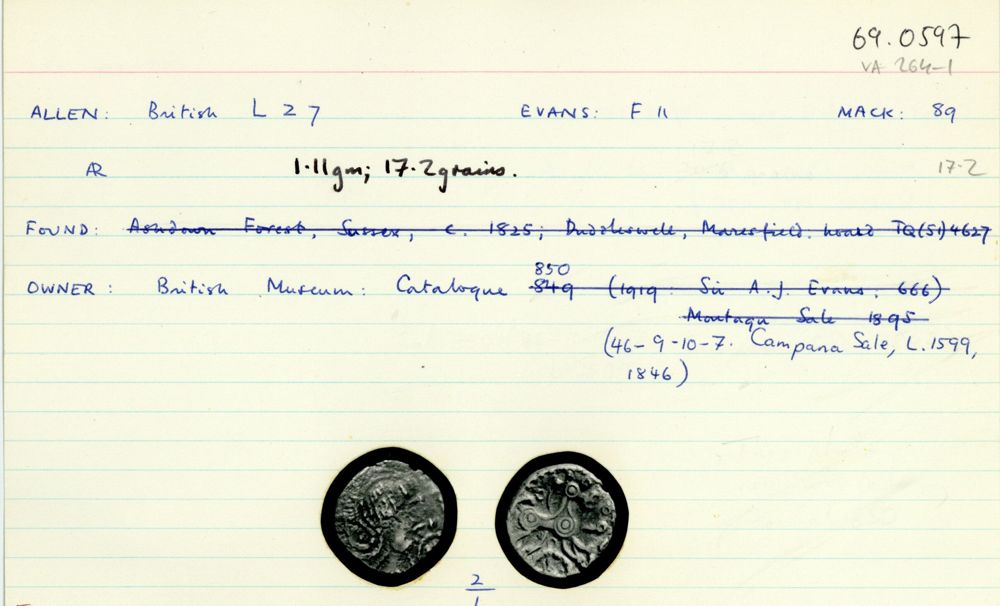 69.0597
VA 264-1
ALLEN: British L 27 EVANS: F 11 MACK: 89
AR 1.11gm; 17.2grains. 17.2
FOUND: Ashdown Forest, Sussex, c. 1825; Duddleswell, Maresfield. hoard TQ(51)4627
850
OWNER: British Museum: Catalogue 849 (1919: Sir A.J. Evans. 666)
Montagu Sale 1895
(46-9-10-7. Campana Sale, L.1599,
1846)
2
1